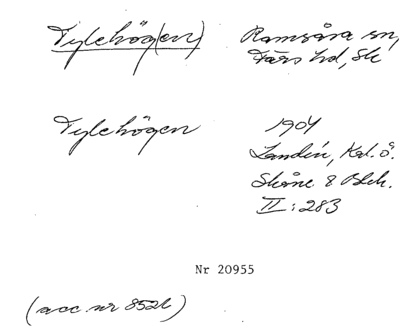 Tylehög(en) Ramsåsa sn,
Färs hd, Sk
Tylehögen 1904
Landin, Kat. ö.
Skåne & Blek.
II: 283
Nr 20955
(acc. nr 852b)